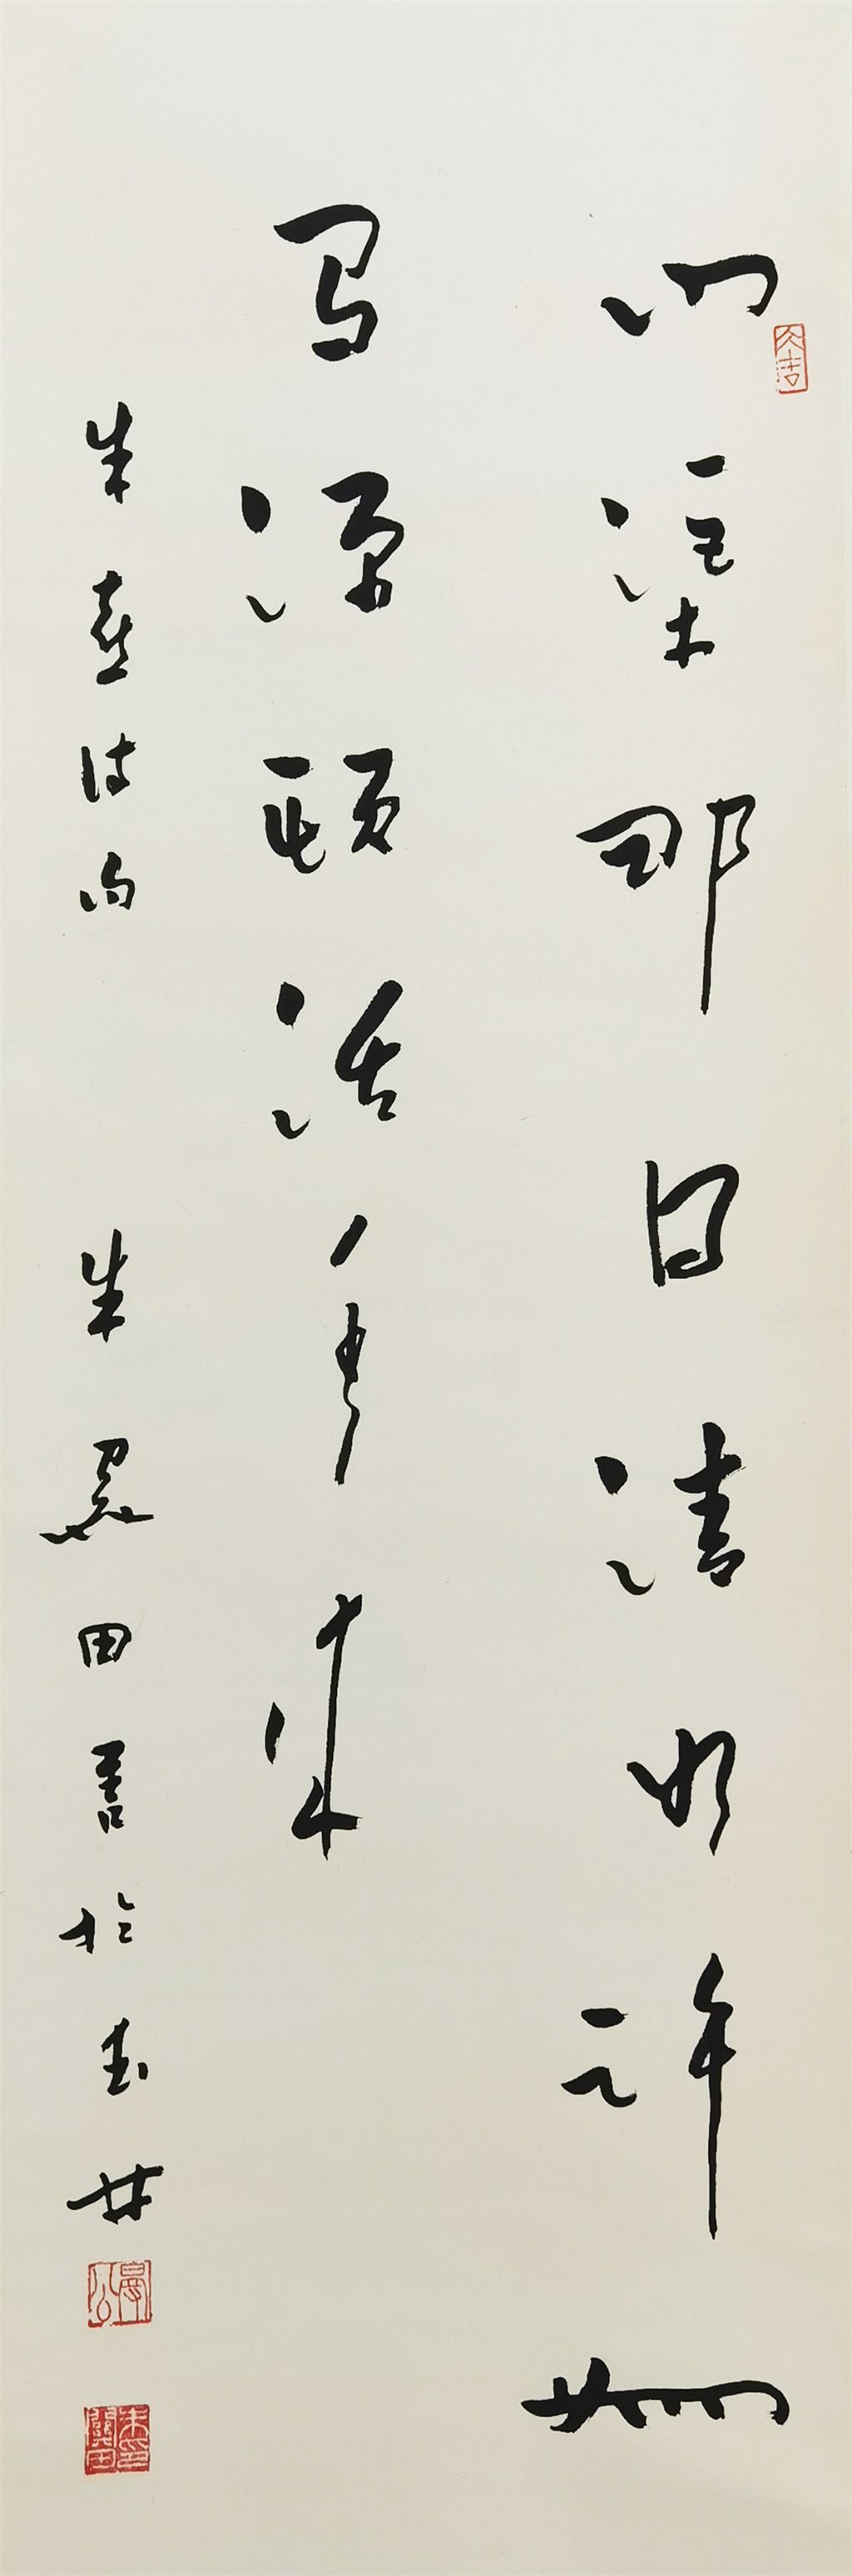 問渠那得清如許為
有源頭活水来
朱熹诗句 朱關田書於